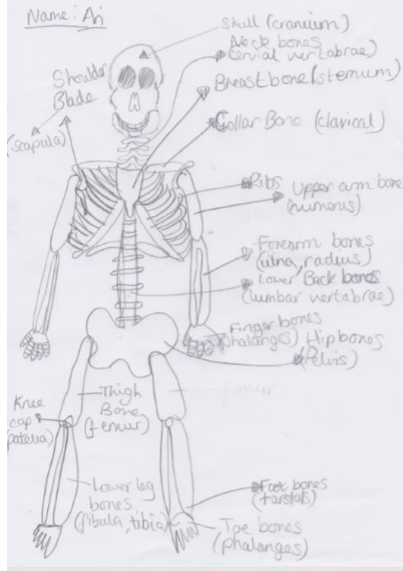 Name: Ai
Skull (cranium)
Neck bones
(cervial vertabrae)
Shoulder
Blade
(scapula)
Breastbone (sternum)
Collar Bone (clavical)
Ribs
Upper arm bone
(numerus)
Forearm bones
(ulna, radius)
Lower Back bones
(lumbar vertabrae)
Finger bones
(phalanges)
Hip bones
(Pelvis)
Thigh
Bone
(femur)
femur
Knee
cap
(patella)
Lower leg
bones
(fibula, tibia)
Foot bones
(tarstals)
Toe bones
(phalanges)